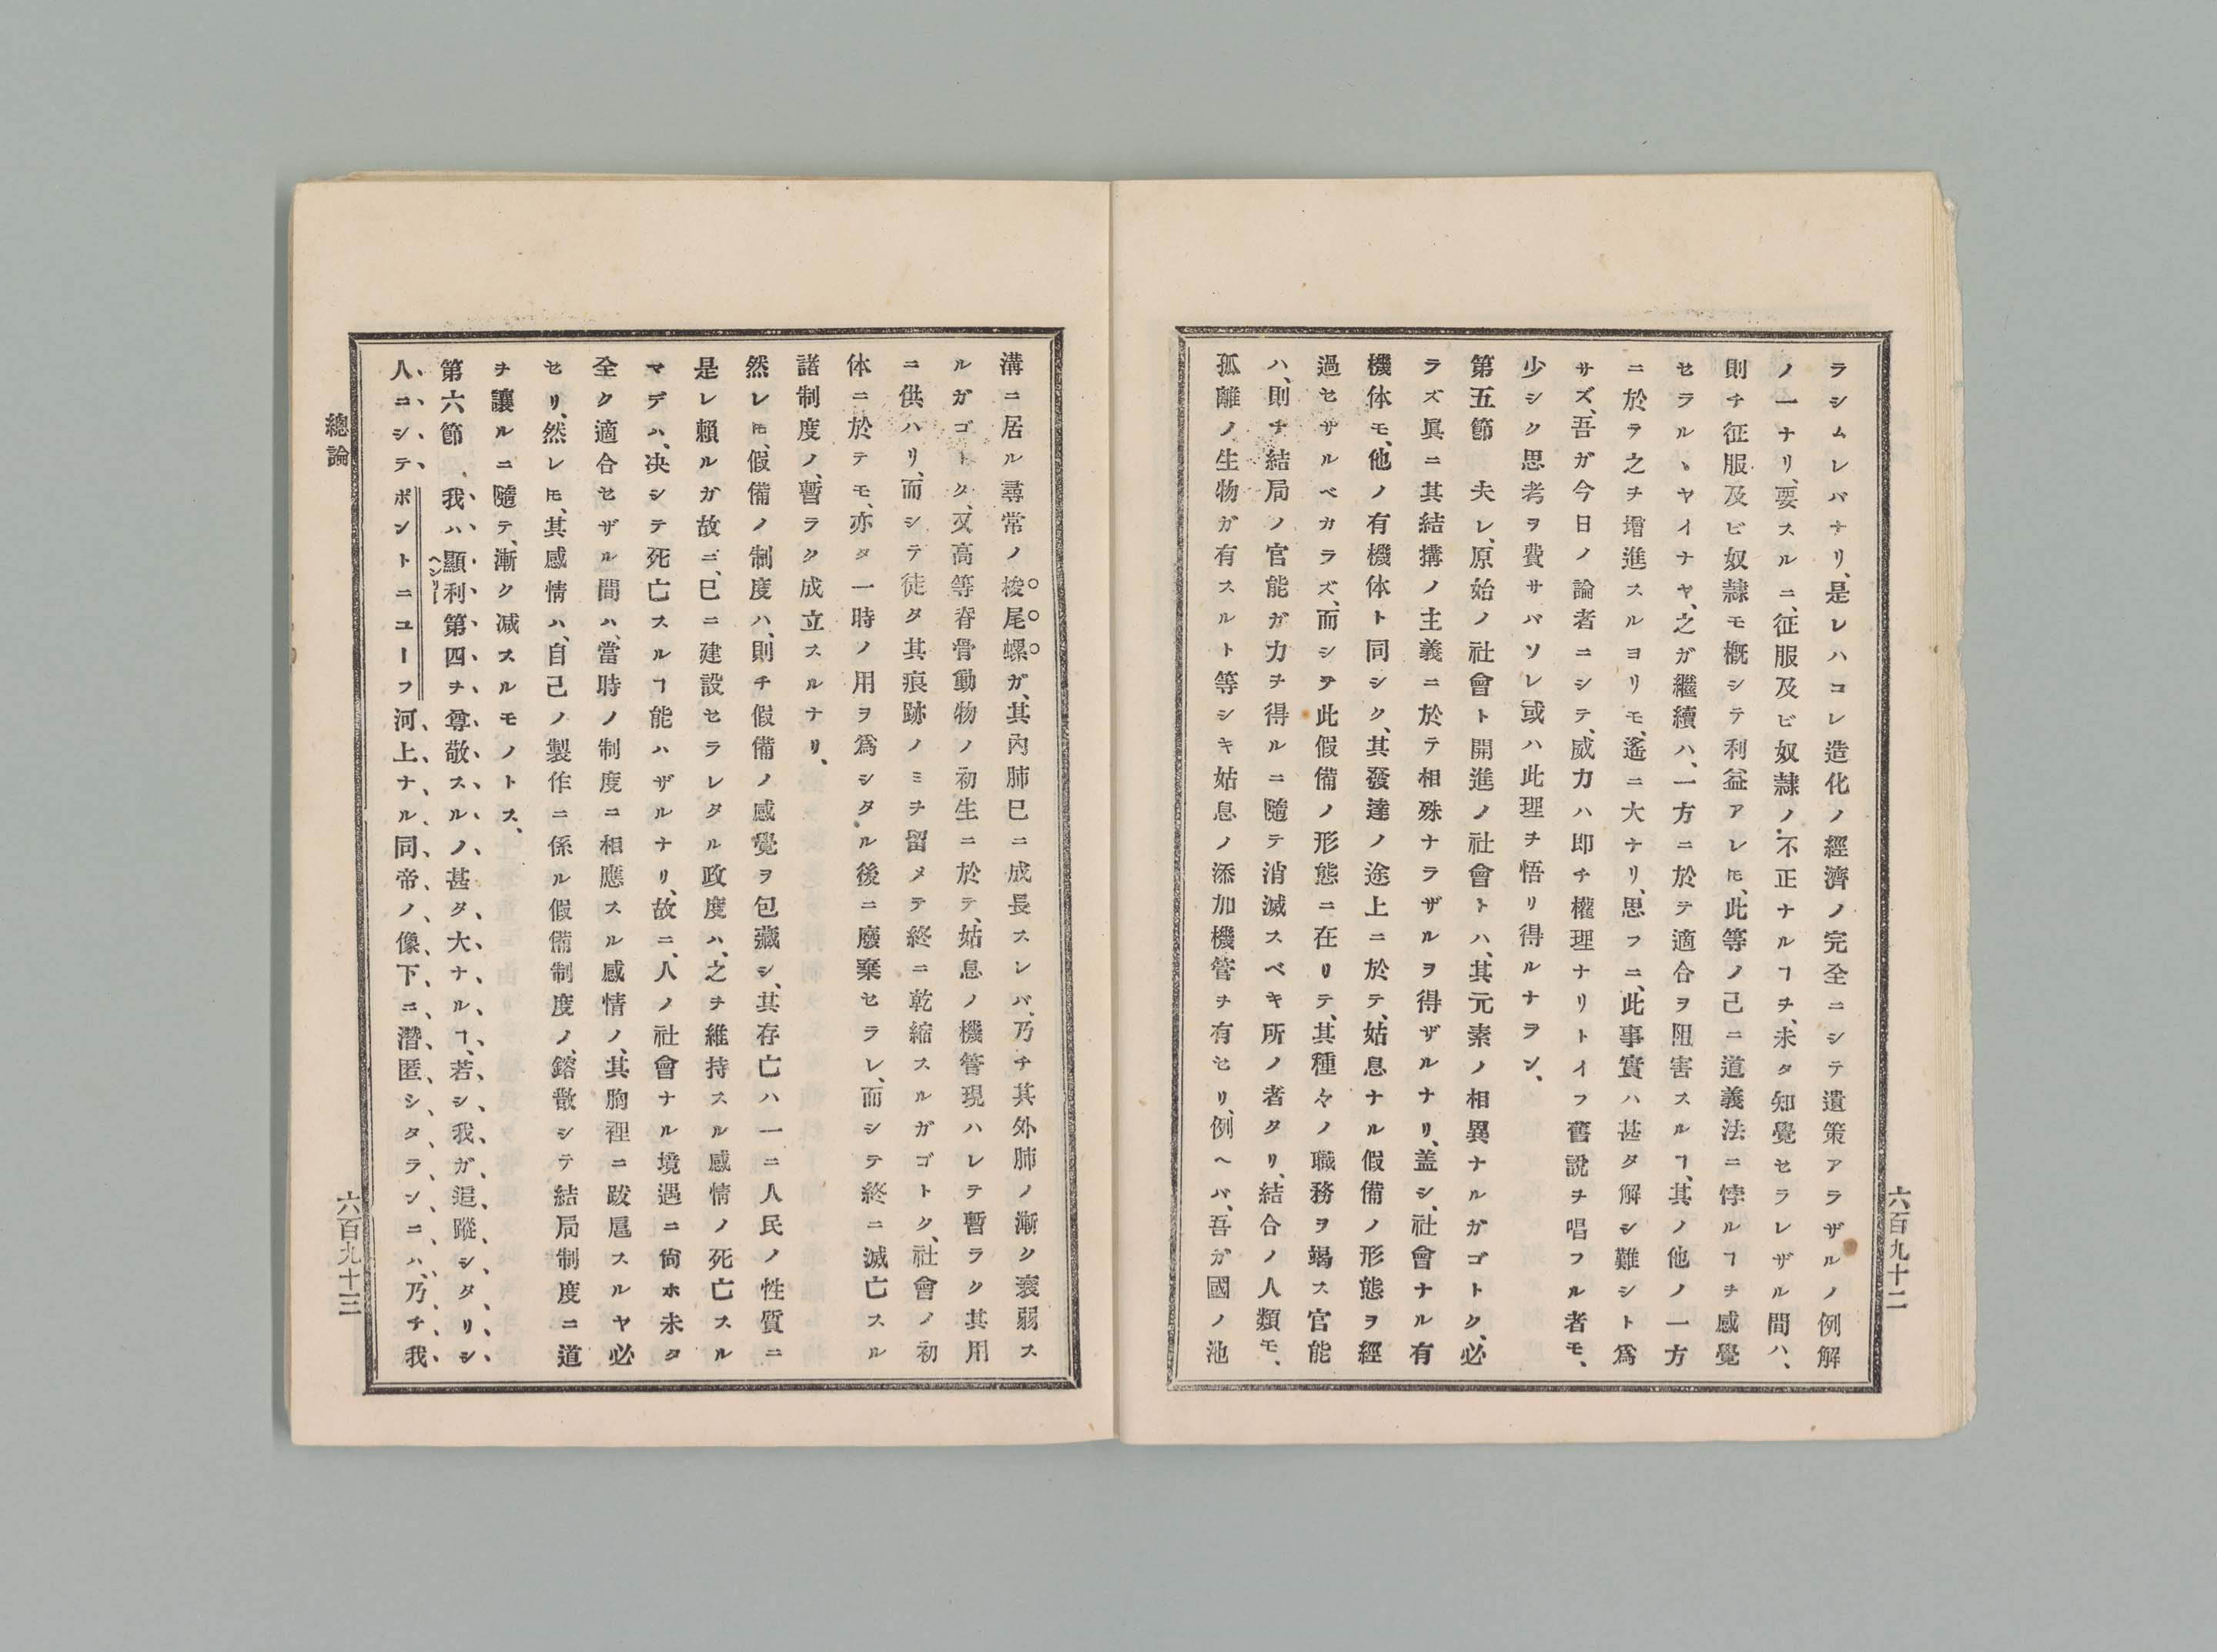 ラシムレバナリ、是レハコレ造化ノ經濟ノ完全ニシテ遺策アラザルノ例解
ノ一ナリ、要スルニ、征服及ビ奴隸ノ、不正ナルヿヲ、未タ知覺セラレザル間ハ、
則チ征服及ビ奴隸モ概シテ利益アレ𪜈、此等ノ己ニ道義法ニ悖ルヿヲ感覺
セラルヽヤイナヤ、之ガ繼續ハ、一方ニ於テ適合ヲ阻害スルヿ、其ノ他ノ一方
ニ於ラ之ヲ增進スルヨリモ、遙ニ大ナリ、思フニ、此事實ハ甚タ解シ難シト爲
サズ、吾ガ今日ノ論者ニシテ、威力ハ即チ權理ナリトイフ舊說ヲ唱フル者モ、
少シク思考ヲ費サバソレ或ハ此理ヲ悟リ得ルナラン、
第五節　夫レ、原始ノ社會ト開進ノ社會トハ、其元素ノ相異ナルガゴトク、必
ラズ眞ニ其結搆ノ主義ニ於テ相殊ナラザルヲ得ザルナリ、盖シ、社會ナル有
機体モ、他ノ有機体ト同シク、其發達ノ途上ニ於テ、姑息ナル假備ノ形態ヲ經
過セサルベカラズ、而シテ此假備ノ形態ニ在リテ、其種々ノ職務ヲ竭ス官能
ハ、則チ結局ノ官能ガ力ヲ得ルニ隨テ消滅スベキ所ノ者タリ、結合ノ人類モ、
孤離ノ生物ガ有スルト等シキ姑息ノ添加機管ヲ有セリ、例ヘバ、吾ガ國ノ池
六百九十二
溝ニ居ル尋常ノ梭尾螺ガ、其內肺已ニ成長スレバ、乃チ其外肺ノ漸ク衰弱ス
ルガゴトク、又高等脊骨動物ノ初生ニ於テ、姑息ノ機管現ハレテ暫ラク其用
ニ供ハリ、而シテ徒タ其痕跡ノミヲ留メテ終ニ乾縮スルガゴトク、社會ノ初
体ニ於テモ、亦タ一時ノ用ヲ爲シタル後ニ廢棄セラレ、而シテ終ニ滅亡スル
諸制度ノ、暫ラク成立スルナリ、
然レ𪜈、假備ノ制度ハ、則チ假備ノ感覺ヲ包藏シ、其存亡ハ一ニ人民ノ性質ニ
是レ賴ルガ故ニ、巳ニ建設セラレタル政度ハ、之ヲ維持スル感情ノ死亡スル
マデハ、決シテ死亡スルヿ能ハザルナリ、故ニ、人ノ社會ナル境遇ニ尙ホ未タ
全ク適合セザル間ハ、當時ノ制度ニ相應スル感情ノ、其胸裡ニ跋扈スルヤ必
セリ、然レ𪜈、其感情ハ、自己ノ製作ニ係ル假備制度ノ、鎔散シテ結局制度ニ道
ヲ讓ルニ隨テ、漸ク减スルモノトス、
第六節　我ハ顯利第四ヲ尊敬スルノ甚タ大ナルヿ、若シ我ガ追蹤シタリシ
ヘンリー
人ニシテポントニユーフ河上ナル同帝ノ像下ニ潛匿シタランニハ、乃チ我
總論
六百九十三